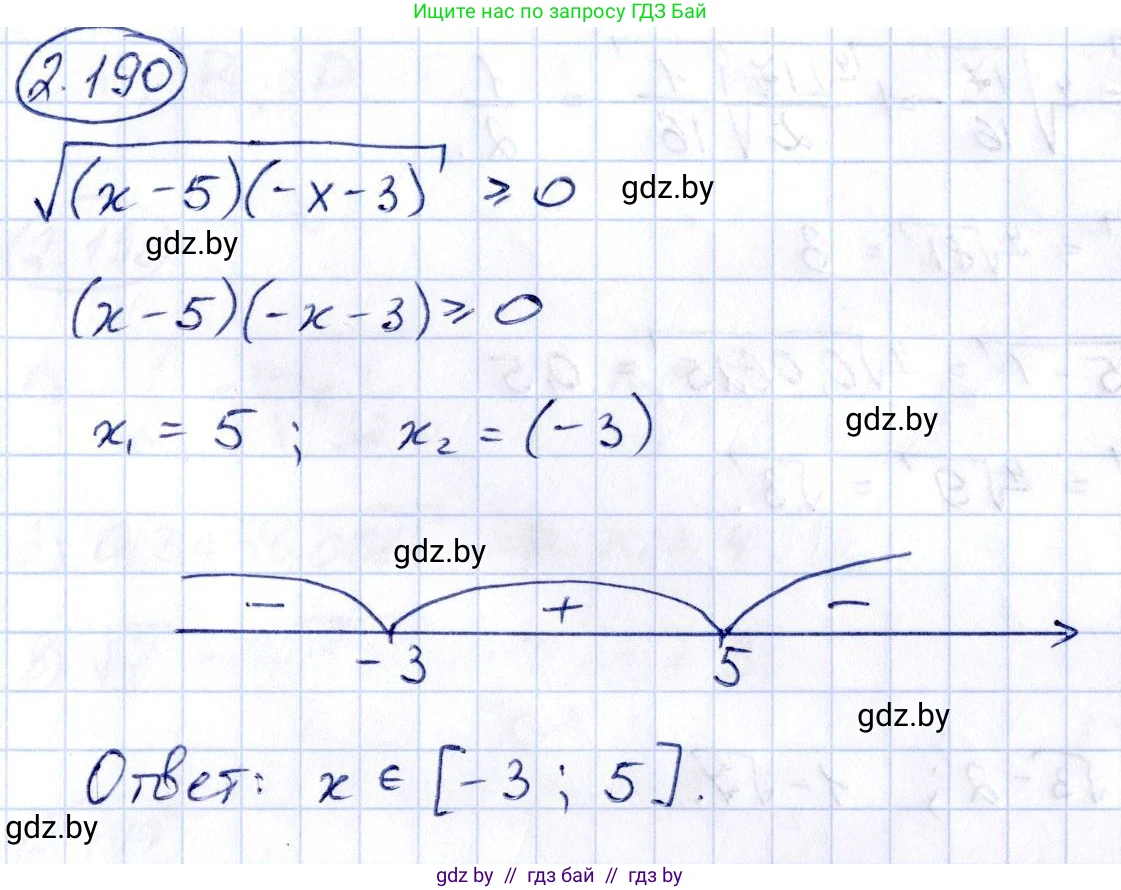 Ищите нас по запросу ГДЗ Бай
2.190
√(x-5)(-x-3) ≥ 0 gdz.by
gdz.by
(x-5)(-x-3) ≥ 0
x₁ = 5 ; x₂ = (-3) gdz.by
gdz.by
- + -
-3 5
gdz.by
Ответ: x ∈ [-3 ; 5].
gdz.by
gdz.by // гдз бай // gdz.by